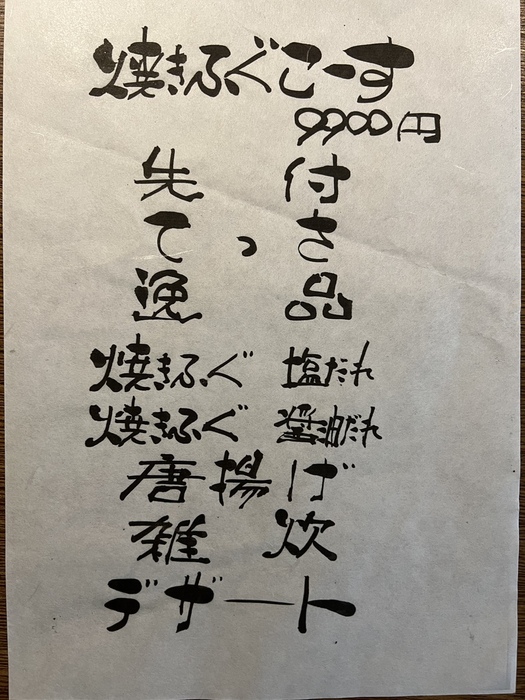 焼きふぐこーす
9900円
先付
てっさ
逸品
焼きふぐ 塩だれ
焼きふぐ 醤油だれ
唐揚げ
雑炊
デザート